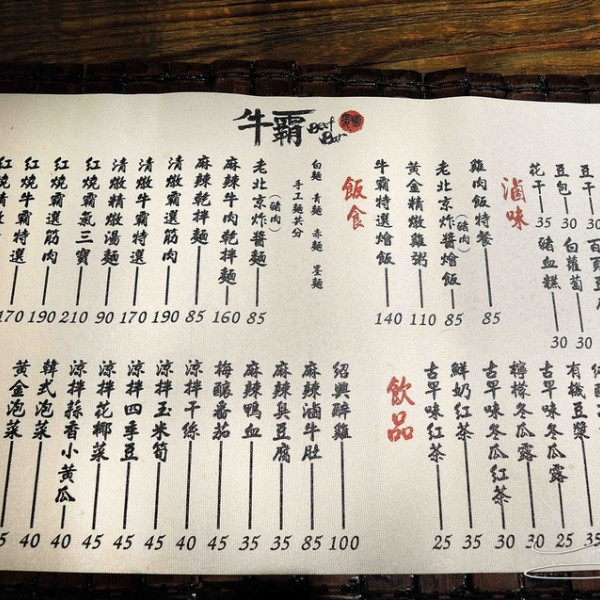 牛霸
Beef Bar
滷味
豆干 30
豆包 30
花干 35
白蘿蔔 30
豬血糕 30
飯食
雞肉飯特餐 85
老北京炸醬燴飯(豬肉) 85
黃金精燉雞粥 110
牛霸特選燴飯 140
白麵 青麵 赤麵 墨麵
手工麵其分
老北京炸醬麵(豬肉) 85
麻辣牛肉乾拌麵 160
麻辣乾拌麵 85
清燉霸選筋肉 190
清燉牛霸特選 170
清燉精燉湯麵 90
紅燒霸氣三寶 210
紅燒霸選筋肉 190
紅燒牛霸特選 170
飲品
有機豆漿 35
古早味冬瓜露 25
檸檬冬瓜露 30
古早味冬瓜紅茶 30
鮮奶紅茶 35
古早味紅茶 25
紹興醉雞 100
麻辣滷牛肚 85
麻辣臭豆腐 35
麻辣鴨血 35
梅釀番茄 45
涼拌干絲 45
涼拌玉米筍 45
涼拌四季豆 45
涼拌花椰菜 45
涼拌蒜香小黃瓜 40
韓式泡菜 40
黃金泡菜